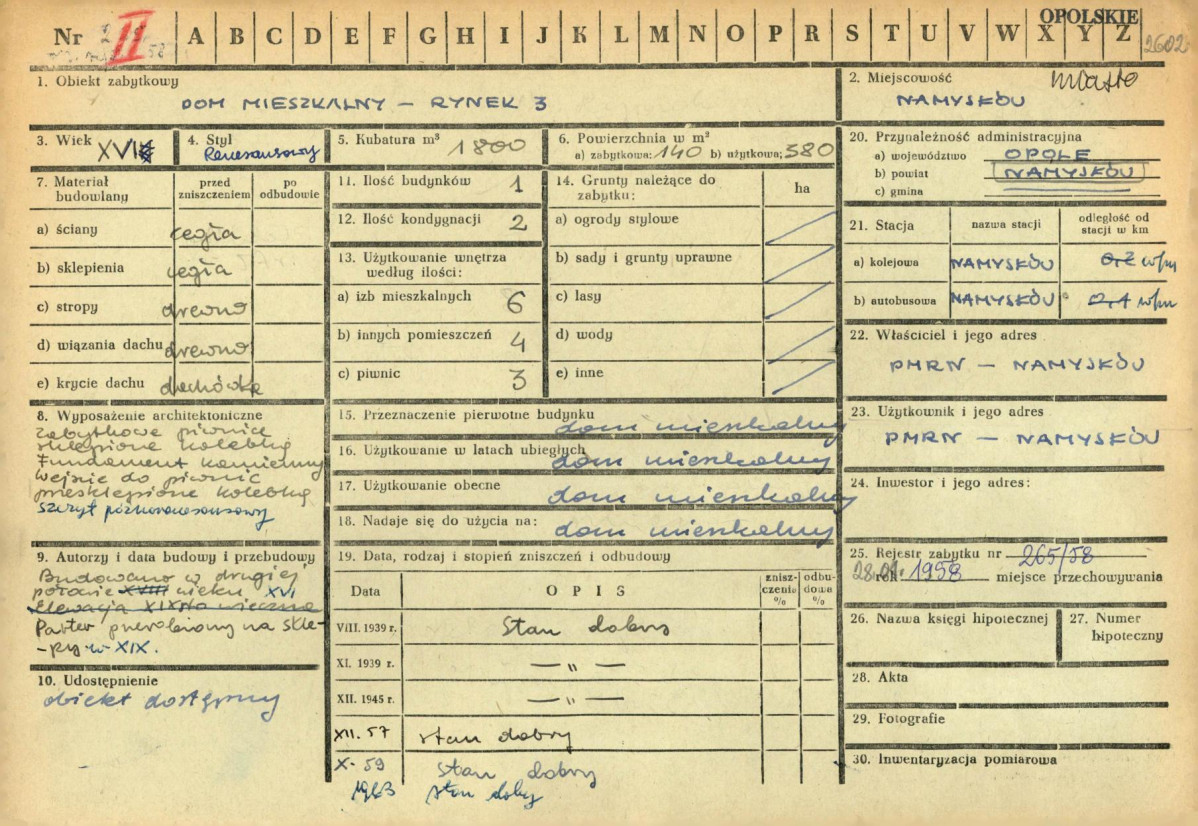 Nr II A B C D E F G H I J K L M N O P R S T U V W X Y Z OPOLSKIE
58
1. Obiekt zabytkowy
DOM MIESZKALNY – RYNEK 3
2. Miejscowość miasto
NAMYSŁÓW
3. Wiek XVI
4. Styl
Renesansowy
5. Kubatura m³ 1800
6. Powierzchnia w m²
a) zabytkowa: 140 b) użytkowa: 380
7. Materiał budowlany
przed zniszczeniem
po odbudowie
a) ściany cegła
b) sklepienia cegła
c) stropy drewno
d) wiązania dachu drewno
e) krycie dachu dachówka
8. Wyposażenie architektoniczne
zabytkowe piwnice
sklepione kolebką
Fundament kamienny
Wejście do piwnic
przesklepione kolebką
szczyt późnorenesansowy
9. Autorzy i data budowy i przebudowy
Budowano w drugiej
połowie XVIII wieku XVI
Elewacja XIX-to wieczna
Parter przerobiony na skle-
-py w XIX.
10. Udostępnienie
obiekt dostępny
11. Ilość budynków 1
12. Ilość kondygnacji 2
13. Użytkowanie wnętrza
według ilości:
a) izb mieszkalnych 6
b) innych pomieszczeń 4
c) piwnic 3
14. Grunty należące do
zabytku:
ha
a) ogrody stylowe
b) sady i grunty uprawne
c) lasy
d) wody
e) inne
15. Przeznaczenie pierwotne budynku
dom mieszkalny
16. Użytkowanie w latach ubiegłych
dom mieszkalny
17. Użytkowanie obecne
dom mieszkalny
18. Nadaje się do użycia na:
dom mieszkalny
19. Data, rodzaj i stopień zniszczeń i odbudowy
Data
OPIS
znisz-
czenie
%
odbu-
dowa
%
VIII. 1939 r. Stan dobry
XI. 1939 r. — „ —
XII. 1945 r. — „ —
XII. 57 stan dobry
X-59 stan dobry
1963 stan dobry
20. Przynależność administracyjna
a) województwo OPOLE
b) powiat NAMYSŁÓW
c) gmina
21. Stacja
nazwa stacji
odległość od
stacji w km
a) kolejowa NAMYSŁÓW 0,2 w/m
b) autobusowa NAMYSŁÓW w/m
22. Właściciel i jego adres
PMRN – NAMYSŁÓW
23. Użytkownik i jego adres
PMRN – NAMYSŁÓW
24. Inwestor i jego adres:
25. Rejestr zabytku nr 265/58
rok 1958 miejsce przechowywania
26. Nazwa księgi hipotecznej
27. Numer
hipoteczny
28. Akta
29. Fotografie
30. Inwentaryzacja pomiarowa